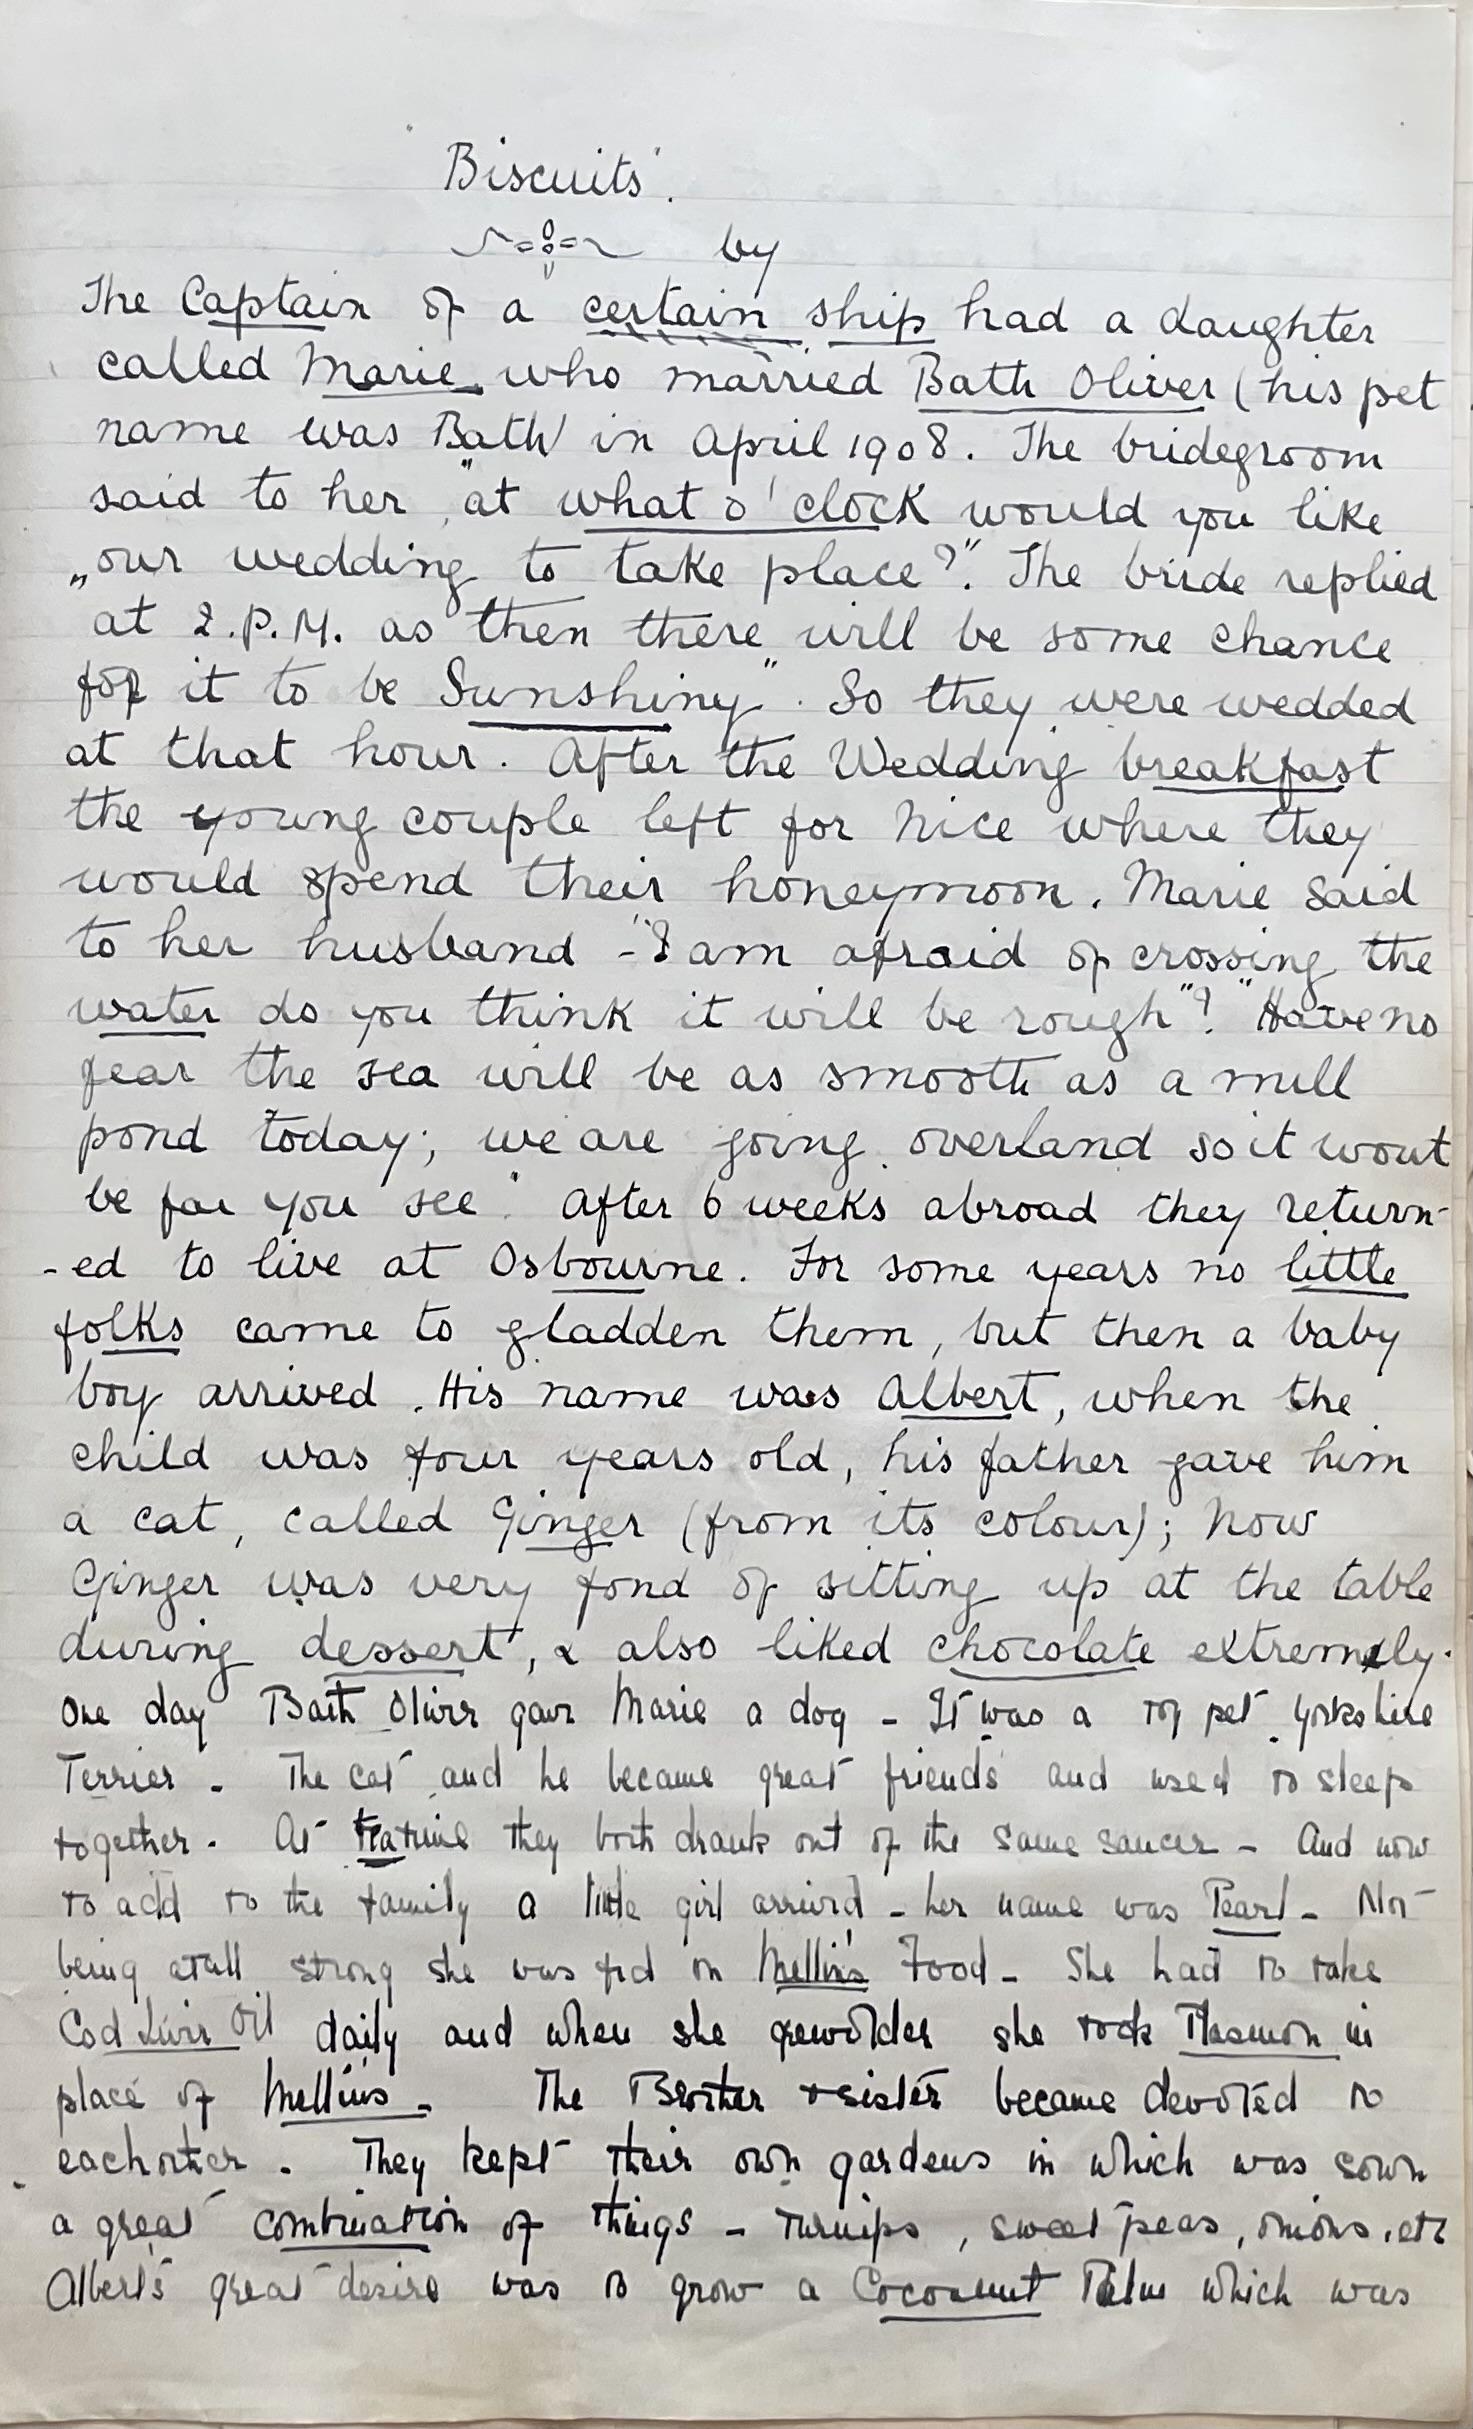 "Biscuits".
by
The Captain of a certain ship had a daughter
called Marie who married Bath Oliver (his pet
name was Bath) in April 1908. The bridegroom
said to her "at what o'clock would you like
„our wedding to take place?". The bride replied
at 2.P.M. as then there will be some chance
for it to be Sunshiny". So they were wedded
at that hour. After the Wedding breakfast
the young couple left for Nice where they
would spend their honeymoon. Marie said
to her husband - "I am afraid of crossing the
water do you think it will be rough"? "Have no
fear the sea will be as smooth as a mill
pond today; we are going overland so it wont
be far you see" After 6 weeks abroad they return-
-ed to live at Osbourne. For some years no little
folks came to gladden them, but then a baby
boy arrived. His name was Albert, when the
child was four years old, his father gave him
a cat, called Ginger (from its colour); Now
Ginger was very fond of sitting up at the table
during dessert, & also liked chocolate extremely.
One day Bath Oliver gave Marie a dog - It was a toy pet Yorkshire
Terrier - The cat and he became great friends and used to sleep
together - At teatime they both drank out of the same saucer - And now
to add to the family a little girl arrived - her name was Pearl - Not
being atall strong she was fed on Mellin's Food - She had to take
Cod Liver Oil daily and when she grew older she took Plasmon in
place of Mellins - The Brother & sister became devoted to
eachother - They kept their own gardens in which was sown
a great combination of things - turnips, sweet peas, onions, etc
Albert's great desire was to grow a Cocoanut Palm which was